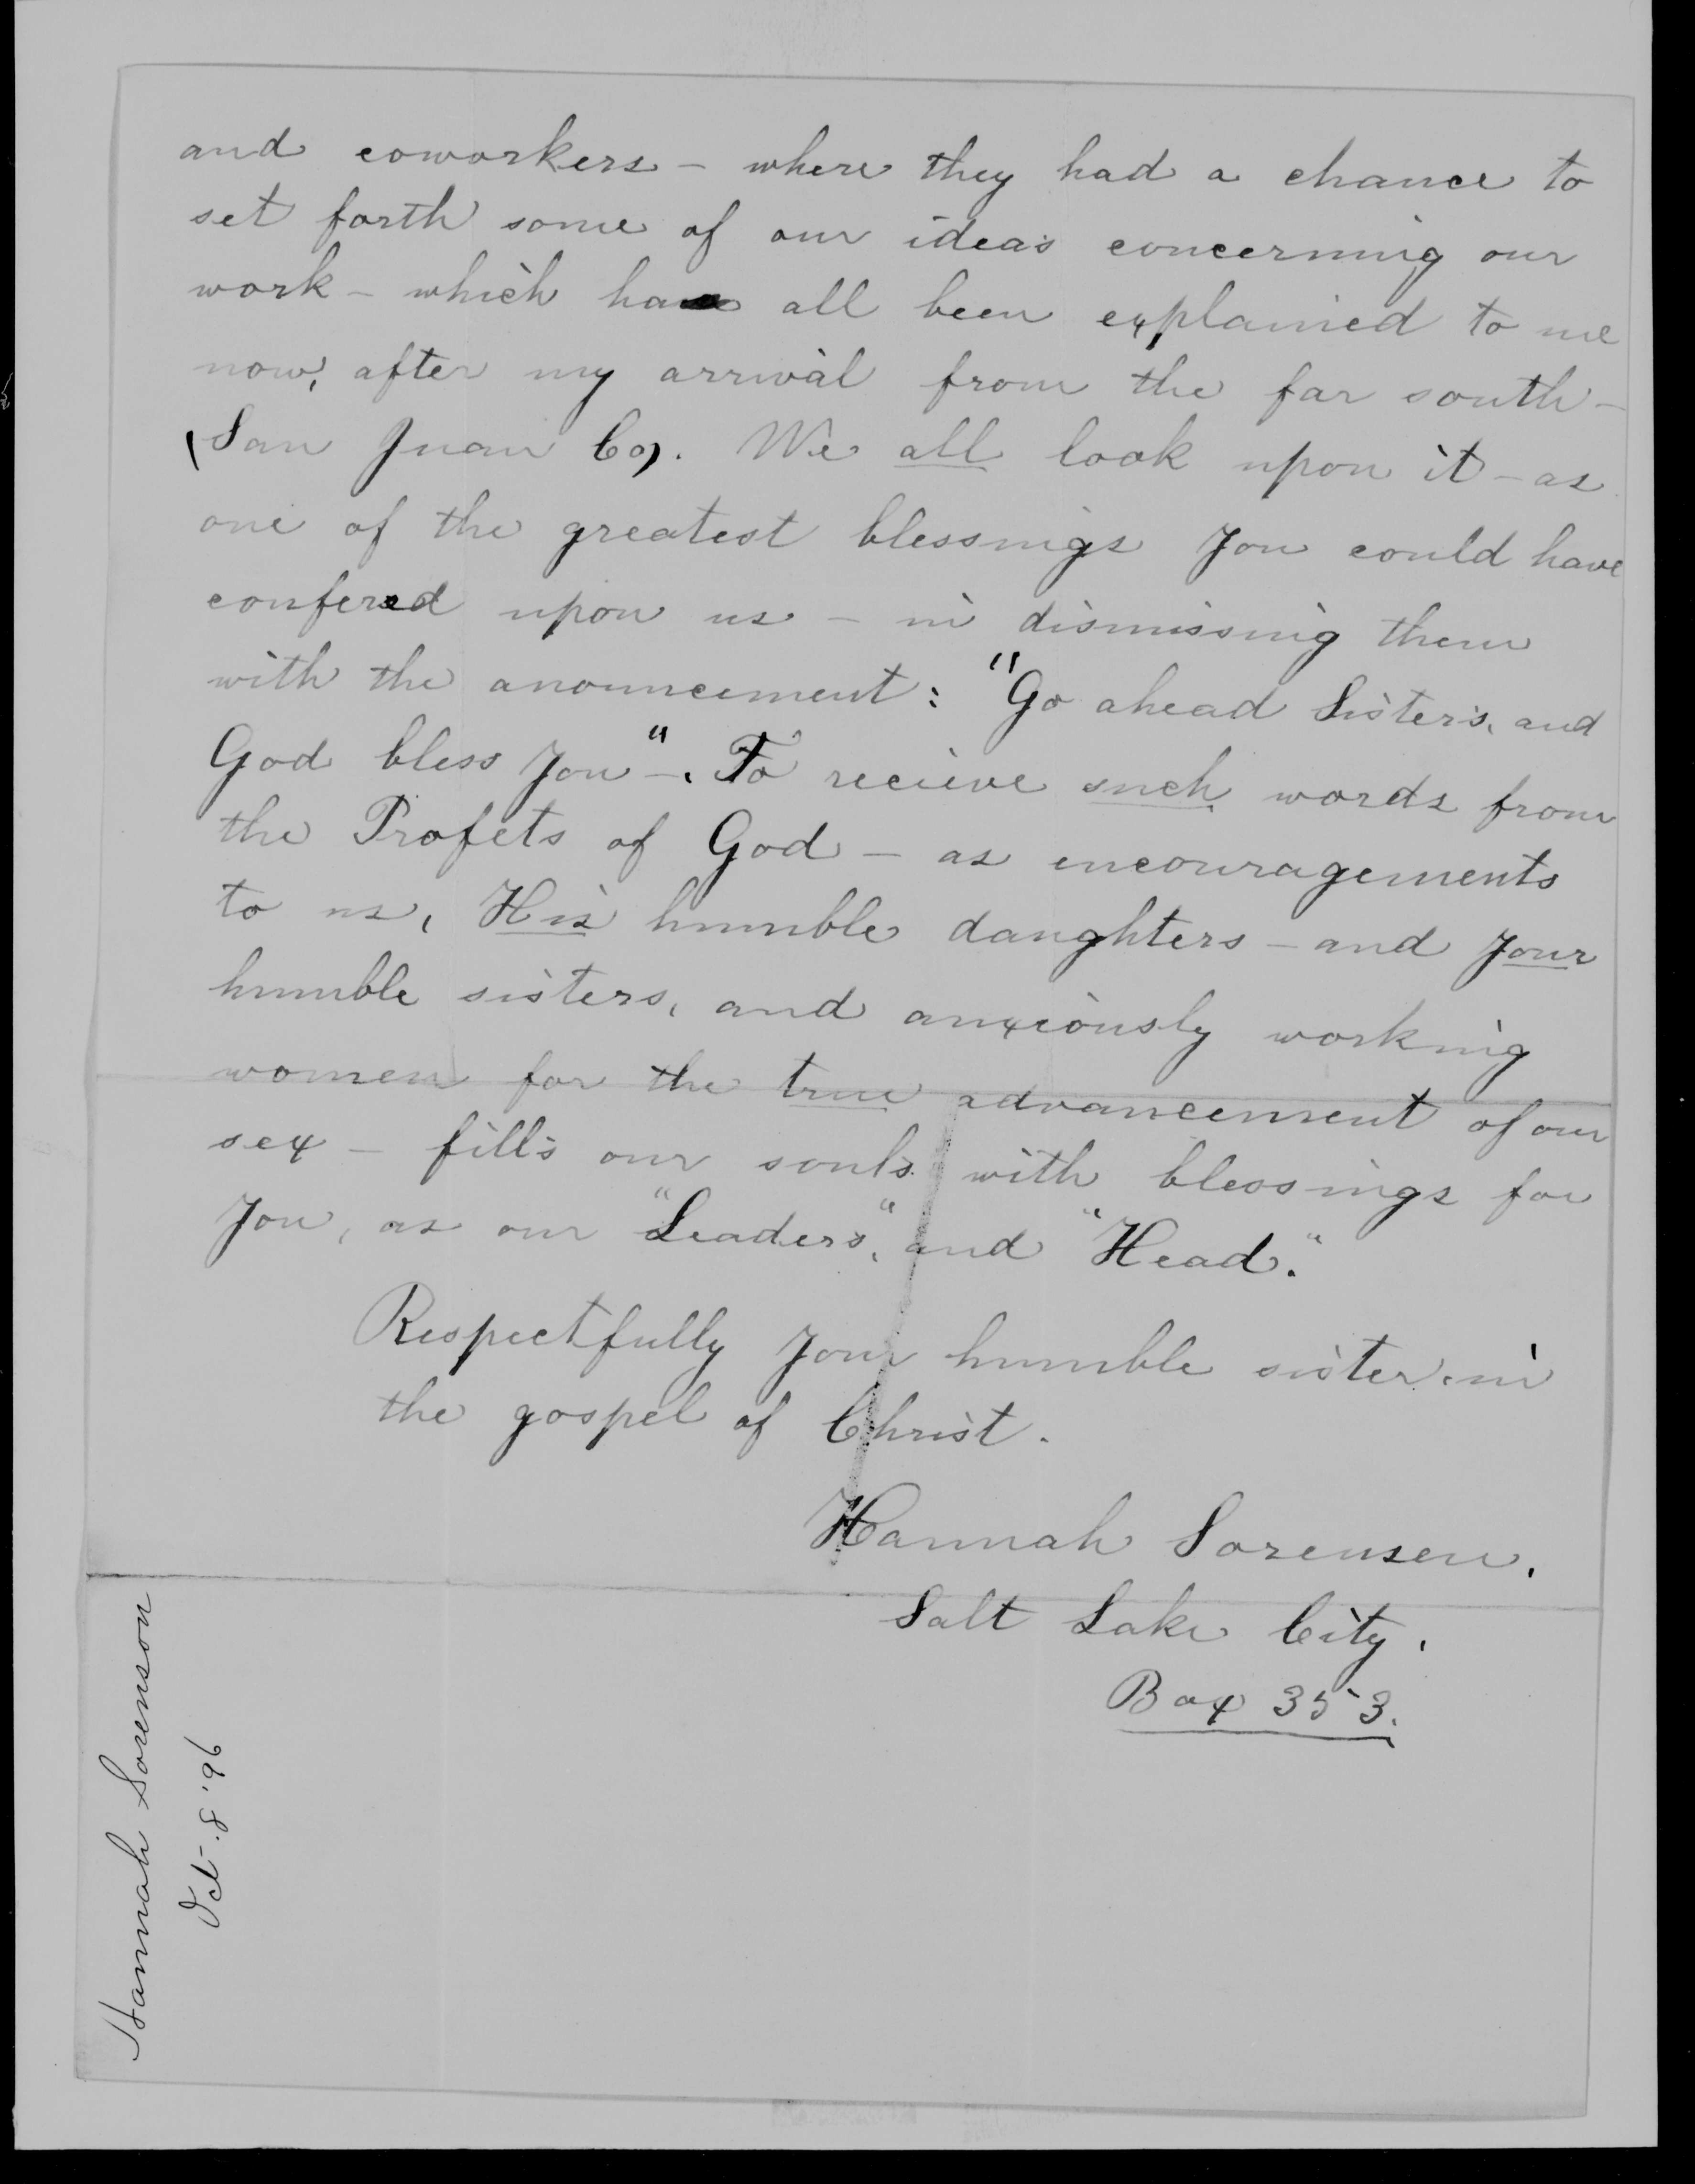 and coworkers – where they had a chance to
set forth some of our ideas concerning our
work – which have all been explained to me
now, after my arrival from the far south –
(San Juan Co). We all look upon it – as
one of the greatest blessings You could have
confered upon us – in dismissing them
with the anouncement: "Go ahead Sisters, and
God bless You" –. To recieve such words from
the Profets of God – as encouragements
to us, His humble daughters – and Your
humble sisters, and anxciously working
women for the true advancement of our
sex – fills our souls with blessings for
You, as our "Leaders", and "Head".
Respectfully Your humble sister in
the gospel of Christ.
Hannah Sorensen.
Salt Lake City.
Box 353.
Hannah Sorenson
Oct. 8 '96